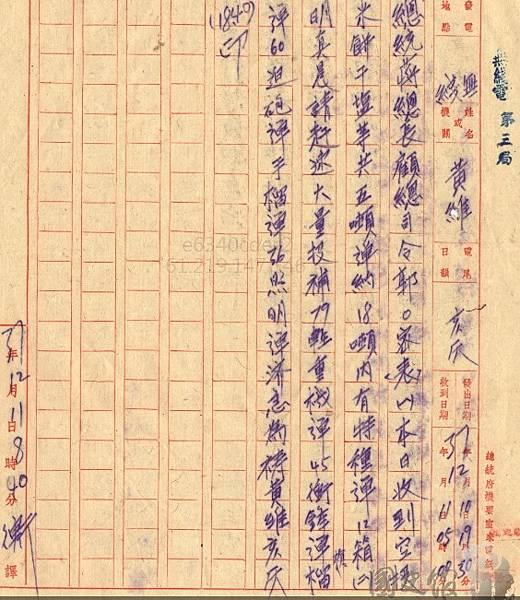 無線電 第三局
總統府機要室來電
發電地點
雙
姓名或機關 黃維
電尾日韻 亥灰
發出日期 37年12月10日19時30分
收到日期 年 月11日05時 分
總統蔣總長顧總司令郭0密表(1)本日收到空投
米餅干鹽等共五噸彈約18噸內有特種彈12箱(2)
明真晨請趕速大量投補79輕重機彈45衝鋒彈榴
彈60迫砲彈手榴彈36照明彈濟急為禱黃維亥灰
(1840)印
37年12月11日8時40分 譯
國史館
e6340
61.219.147